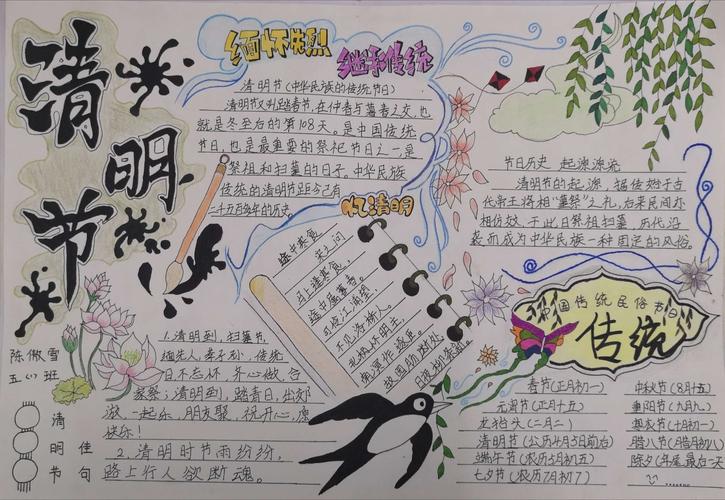 清明节
缅怀先烈
继承传统
清明节(中华民族的传统节日)
清明节又叫踏青节,在仲春与暮春之交,也
就是冬至后的第108天。是中国传统
节日,也是最重要的祭祀节日之一是
祭祖和扫墓的日子。中华民族
传统的清明节距今已有
二千五百多年的历史。
忆清明
途中寒食
宋之问
马上逢寒食
途中属暮春。
可怜江浦望
不见洛桥人。
北极怀明主,
南溟作逐臣。
故园肠断处
日夜柳条新。
节日历史 起源源流
清明节的起源,据传始于古
代帝王将相"墓祭"之礼,后来民间亦
相仿效,于此日祭祖扫墓,历代沿
袭而成为中华民族一种固定的风俗。
中国传统民俗节日
传统
春节(正月初一)
元宵节(正月十五)
龙抬头(二月二)
清明节(公历4月5日前后)
端午节(农历5月初五)
七夕节(农历7月初7)
中秋节(8月十五)
重阳节(九月九)
寒衣节(十月初一)
腊八节(腊月初八)
除夕(年尾最后一天)
陈傲雪
五(1)班
清明节
佳句
1.清明到,扫墓节,
缅先人,孝子到,传统
日不忘怀,齐心做,合
家祭;清明到,踏青日,出郊
游,一起乐,朋友聚,祝开心,愿
快乐!
2.清明时节雨纷纷,
路上行人欲断魂。